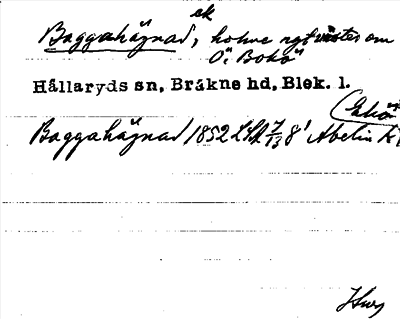 ek
Baggahägnad, holme ngt väster om
Ö. Bokö
Hållaryds sn, Bräkne hd, Blek. l.
Baggahägnad 1852 LSA 7/13 8¹ Abelin K